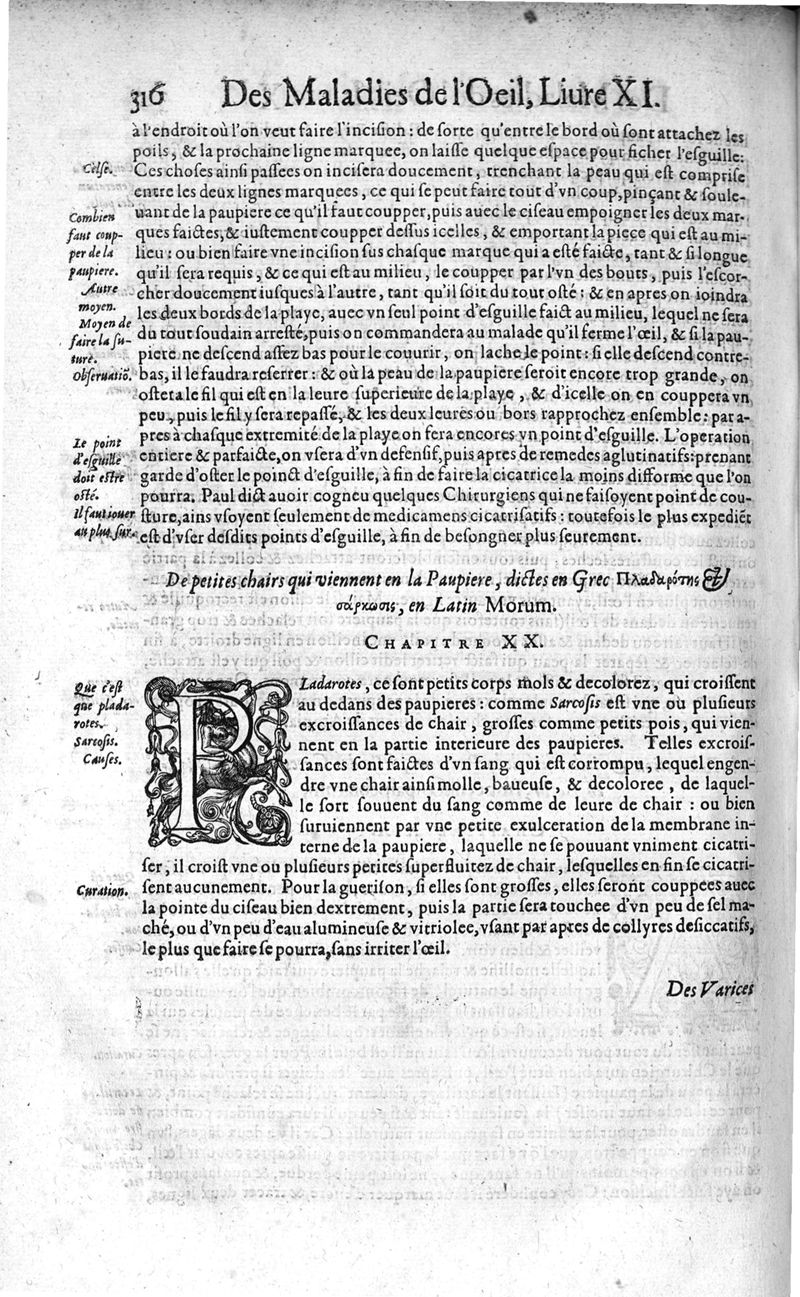 316 Des Maladies de l'Oeil, Liure XI.
à l'endroit où l'on veut faire l'incision : de sorte qu'entre le bord où sont attachez les
poils, & la prochaine ligne marquee, on laisse quelque espace pour ficher l'esguille:
Celse.
Ces choses ainsi passees on incisera doucement, trenchant la peau qui est comprise
entre les deux lignes marquees, ce qui se peut faire tout d'vn coup, pinçant & soule-
Combien
faut coup-
per de la
paupiere.
uant de la paupiere ce qu'il faut coupper, puis auec le ciseau empoigner les deux mar-
ques faictes, & iustement coupper dessus icelles, & emportant la piece qui est au mi-
lieu : ou bien faire vne incision sus chasque marque qui a esté faicte, tant & si longue
qu'il sera requis, & ce qui est au milieu, le coupper par l'vn des bouts, puis l'escor-
Autre
moyen.
cher doucement iusques à l'autre, tant qu'il soit du tout osté : & en apres on ioindra
les deux bords de la playe, auec vn seul point d'esguille faict au milieu, lequel ne sera
Moyen de
faire la su-
ture.
du tout soudain arresté, puis on commandera au malade qu'il ferme l'œil, & si la pau-
piere ne descend assez bas pour le couurir, on lache le point : si elle descend contre-
Obseruatiõ.
bas, il le faudra reserrer : & où la peau de la paupiere seroit encore trop grande, on
ostera le fil qui est en la leure superieure de la playe, & d'icelle on en couppera vn
peu, puis le fil y sera repassé, & les deux leures ou bors rapprochez ensemble : par a-
pres à chasque extremité de la playe on fera encores vn point d'esguille. L'operation
Le point
d'esguille
doit estre
osté.
entiere & parfaicte, on vsera d'vn defensif, puis apres de remedes aglutinatifs: prenant
garde d'oster le poinct d'esguille, à fin de faire la cicatrice la moins difforme que l'on
pourra. Paul dict auoir cogneu quelques Chirurgiens qui ne faisoyent point de cou-
Il faut iouer
au plus sur.
sture, ains vsoyent seulement de medicamens cicatrisatifs : toutefois le plus expediẽt
est d'vser desdits points d'esguille, à fin de besongner plus seurement.
De petites chairs qui viennent en la Paupiere, dictes en Grec Πλαδαρότης &
σάρκωσις, en Latin Morum.
CHAPITRE XX.
Que c'est
que plada-
rotes.
Sarcosis.
Causes.
PLadarotes, ce sont petits corps mols & decolorez, qui croissent
au dedans des paupieres : comme Sarcosis est vne où plusieurs
excroissances de chair, grosses comme petits pois, qui vien-
nent en la partie interieure des paupieres. Telles excrois-
sances sont faictes d'vn sang qui est corrompu, lequel engen-
dre vne chair ainsi molle, baueuse, & decoloree, de laquel-
le sort souuent du sang comme de leure de chair : ou bien
suruiennent par vne petite exulceration de la membrane in-
terne de la paupiere, laquelle ne se pouuant vniment cicatri-
ser, il croist vne ou plusieurs petites superfluitez de chair, lesquelles en fin se cicatri-
Curation.
sent aucunement. Pour la guerison, si elles sont grosses, elles seront couppees auec
la pointe du ciseau bien dextrement, puis la partie sera touchee d'vn peu de sel ma-
ché, ou d'vn peu d'eau alumineuse & vitriolee, vsant par apres de collyres desiccatifs,
le plus que faire se pourra, sans irriter l'œil.
Des Varices